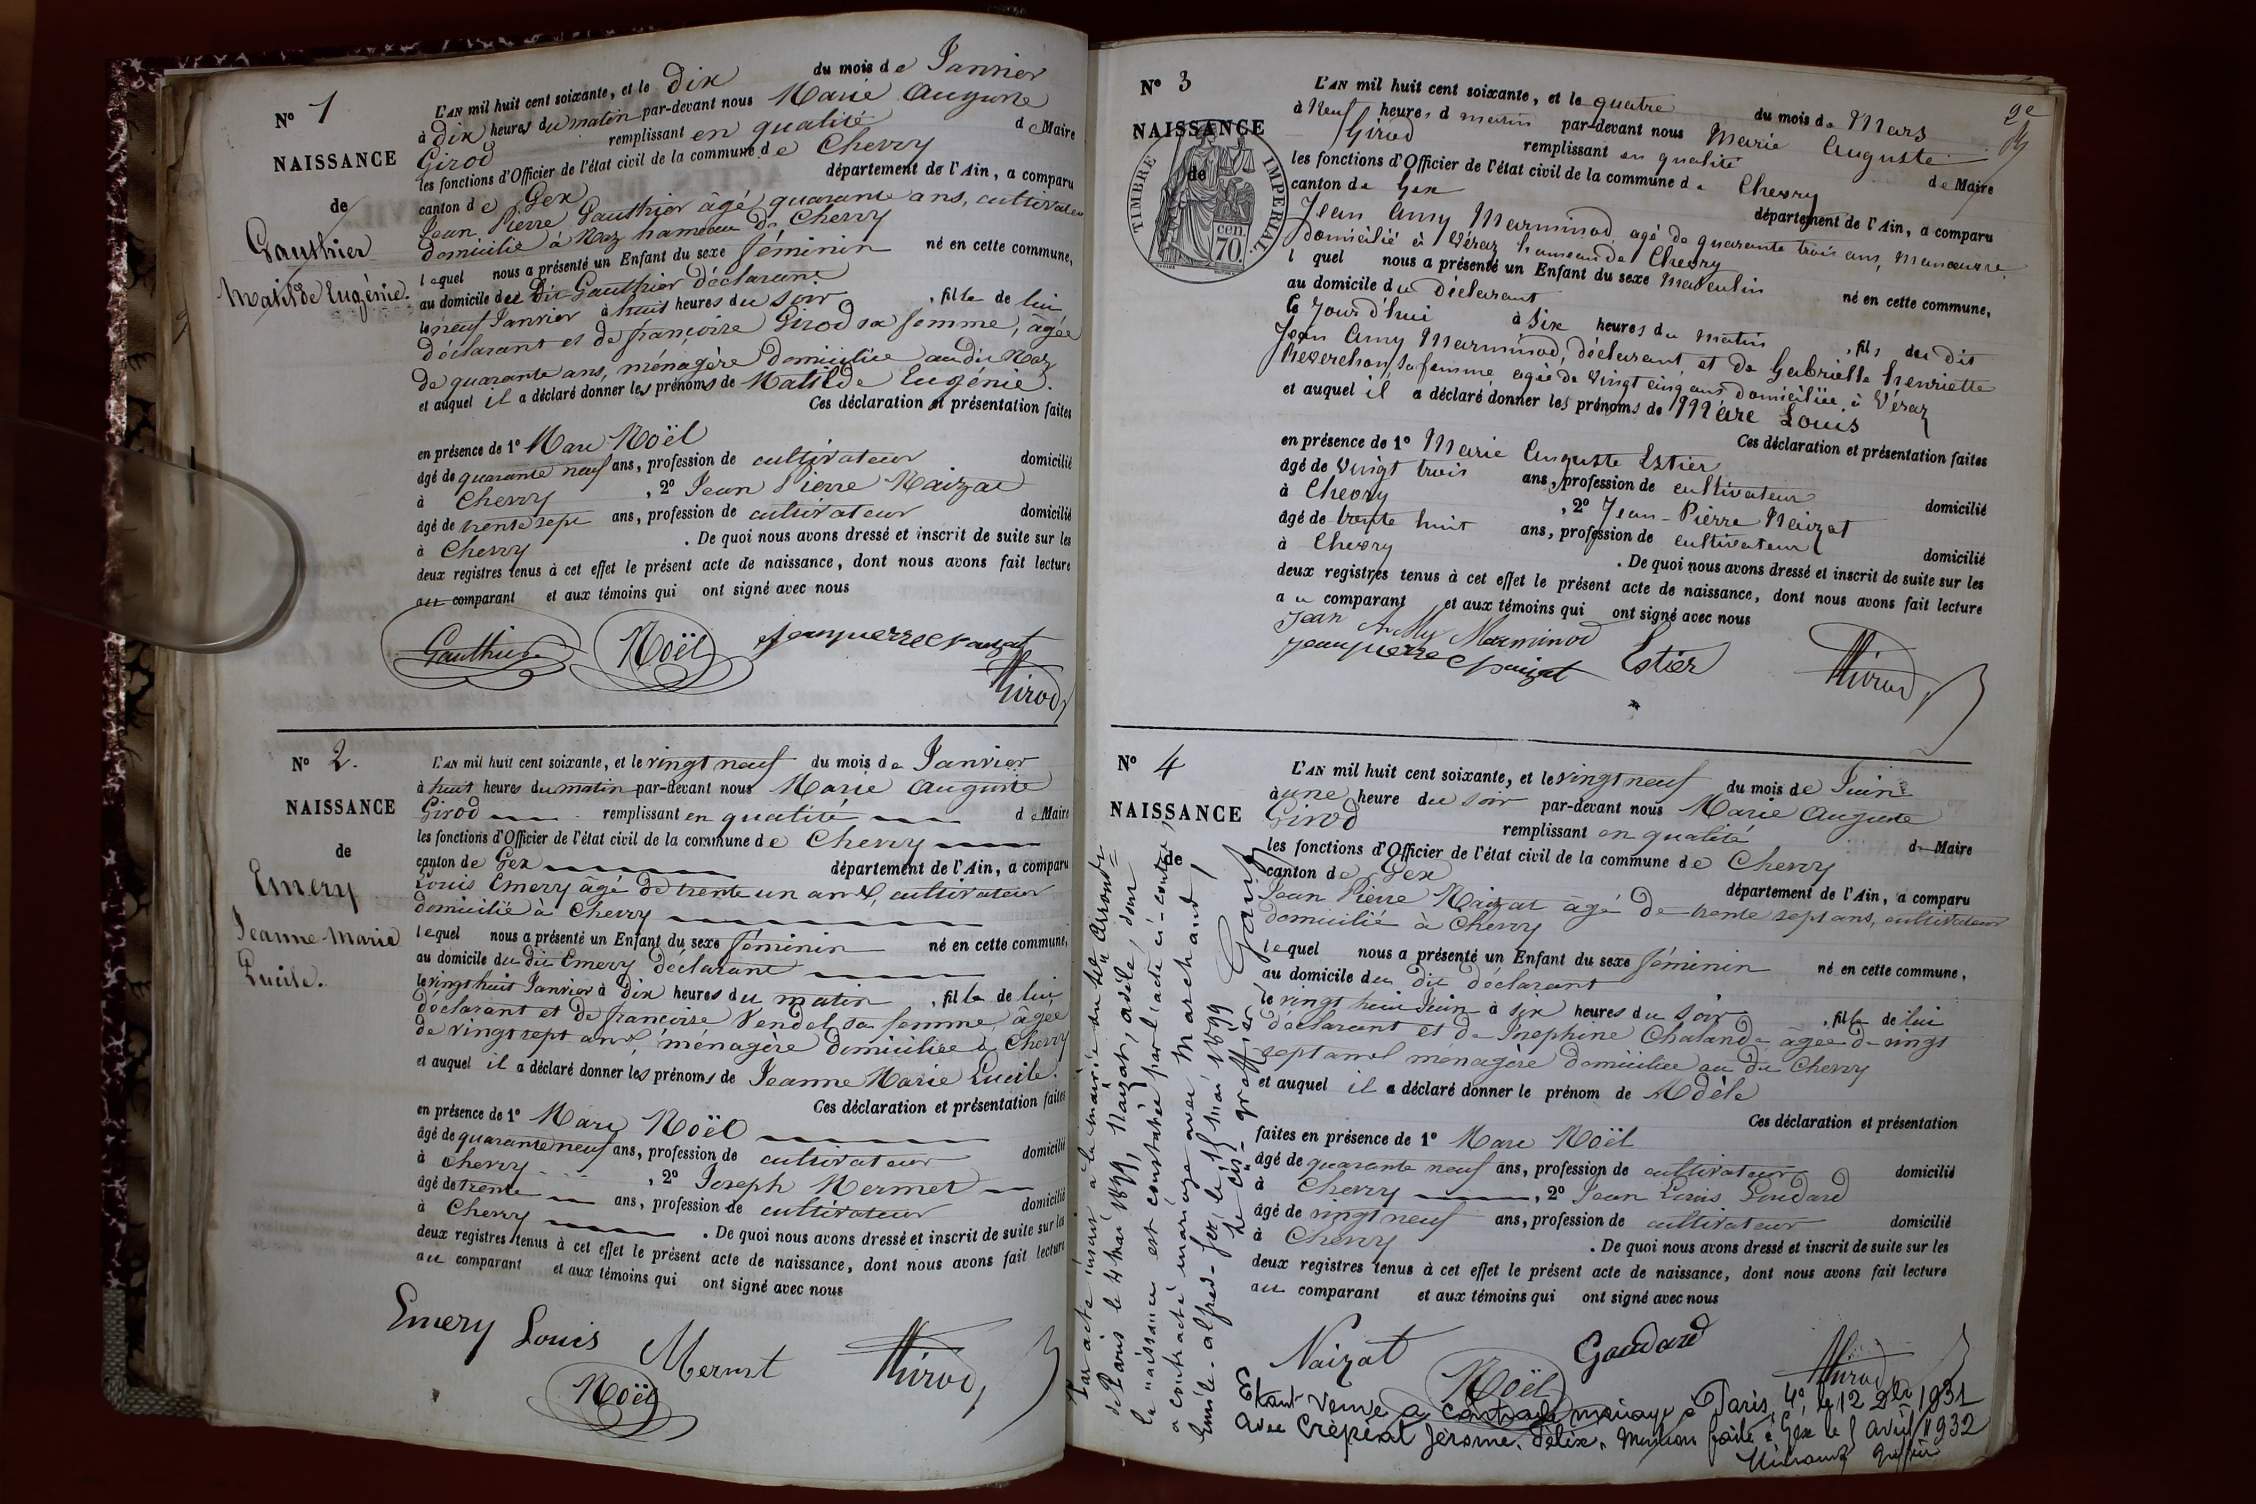 N° 1
NAISSANCE
de
Gauthier
Matilde Eugénie.
L'AN mil huit cent soixante, et le dix du mois de Janvier
à dix heures du matin par-devant nous Marie Auguste
Girod remplissant en qualité de Maire
les fonctions d'Officier de l'état civil de la commune de Chevry
canton de Gex département de l'Ain, a comparu
Jean Pierre Gauthier âgé quarante ans, cultivateur
domicilié à Naz hameau de Chevry
lequel nous a présenté un Enfant du sexe féminin né en cette commune,
au domicile du dit Gauthier déclarant
le neuf Janvier à huit heures du soir, fille de lui
déclarant et de françoise Girod sa femme, âgée
de quarante ans, ménagère domiciliée au dit Naz
et auquel il a déclaré donner les prénoms de Matilde Eugénie.
Ces déclaration et présentation faites
en présence de 1° Marc Noël
âgé de quarante neuf ans, profession de cultivateur domicilié
à Chevry, 2° Jean Pierre Naizat
âgé de trente sept ans, profession de cultivateur domicilié
à Chevry. De quoi nous avons dressé et inscrit de suite sur les
deux registres tenus à cet effet le présent acte de naissance, dont nous avons fait lecture
au comparant et aux témoins qui ont signé avec nous
Gauthier Noël Jean pierre Naizat
Girod
N° 2.
NAISSANCE
de
Emery
Jeanne-Marie
Lucile.
L'AN mil huit cent soixante, et le vingt neuf du mois de Janvier
à huit heures du matin par-devant nous Marie Auguste
Girod remplissant en qualité de Maire
les fonctions d'Officier de l'état civil de la commune de Chevry
canton de Gex département de l'Ain, a comparu
Louis Emery âgé de trente un ans, cultivateur
domicilié à Chevry
lequel nous a présenté un Enfant du sexe féminin né en cette commune,
au domicile du dit Emery déclarant
le vingt huit Janvier à dix heures du matin, fille de lui
déclarant et de françoise Vendel sa femme, âgée
de vingt sept ans, ménagère domiciliée à Chevry
et auquel il a déclaré donner les prénoms de Jeanne Marie Lucile.
Ces déclaration et présentation faites
en présence de 1° Marc Noël
âgé de quarante neuf ans, profession de cultivateur domicilié
à Chevry, 2° Joseph Mermet
âgé de trente ans, profession de cultivateur domicilié
à Chevry. De quoi nous avons dressé et inscrit de suite sur les
deux registres tenus à cet effet le présent acte de naissance, dont nous avons fait lecture
au comparant et aux témoins qui ont signé avec nous
Emery Louis Mermet Girod
Noël
2e
N° 3
NAISSANCE
de
TIMBRE IMPERIAL.
70. cen.
L'AN mil huit cent soixante, et le quatre du mois de Mars
à Neuf heures d matin par-devant nous Marie Auguste
Girod remplissant en qualité de Maire
les fonctions d'Officier de l'état civil de la commune de Chevry
canton de Gex département de l'Ain, a comparu
Jean Amy Marminod, agé de quarante trois ans, manœuvre,
domicilié à Véraz hameau de Chevry
l quel nous a présenté un Enfant du sexe Masculin né en cette commune,
au domicile du déclarant
le Jourd'hui à Six heures du matin, fils du dit
Jean Amy Marminod, déclarant et de Gabrielle henriette
Reverchon, sa femme agée de vingt cinq ans domiciliée à Véraz
et auquel il a déclaré donner les prénoms de Marc Louis
Ces déclaration et présentation faites
en présence de 1° Marie Auguste Estier
âgé de vingt trois ans, profession de cultivateur domicilié
à Chevry, 2° Jean-Pierre Naizat
âgé de trente huit ans, profession de cultivateur domicilié
à Chevry. De quoi nous avons dressé et inscrit de suite sur les
deux registres tenus à cet effet le présent acte de naissance, dont nous avons fait lecture
au comparant et aux témoins qui ont signé avec nous
Jean Amy Marminod
Jean pierre Naizat Estier Girod
N° 4
NAISSANCE
de
L'AN mil huit cent soixante, et le vingt neuf du mois de Juin
à une heure du soir par-devant nous Marie Auguste
Girod remplissant en qualité de Maire
les fonctions d'Officier de l'état civil de la commune de Chevry
canton de Gex département de l'Ain, a comparu
Jean Pierre Naizat âgé de trente sept ans, cultivateur
domicilié à Chevry
lequel nous a présenté un Enfant du sexe féminin né en cette commune,
au domicile du dit déclarant
le vingt huit Juin à six heures du soir, fille de lui
déclarant et de Josephine Chaland âgée de vingt
sept ans ménagère domiciliée au dit Chevry
et auquel il a déclaré donner le prénom de Adèle
Ces déclaration et présentation
faites en présence de 1° Marc Noël
âgé de quarante neuf ans, profession de cultivateur domicilié
à Chevry, 2° Jean Louis Goudard
âgé de vingt neuf ans, profession de cultivateur domicilié
à Chevry. De quoi nous avons dressé et inscrit de suite sur les
deux registres tenus à cet effet le présent acte de naissance, dont nous avons fait lecture
au comparant et aux témoins qui ont signé avec nous
Naizat Noël Goudard Girod
Par acte inscrit à la mairie du Arrondt
de Paris le 4 mai 1899, Naizat, adèle, dont
la naissance est constatée par l'acte ci-contre,
a contracté mariage avec Marchand,
Emile-alfred- Gex, le mai 1899
Le cis-greffier
Etant veuve a contracté mariage à Paris, 4e, le 12 2bre 1931
avec Crépéat Jérome, Félix. Mention faite à Gex le 5 avril 1932
greffier